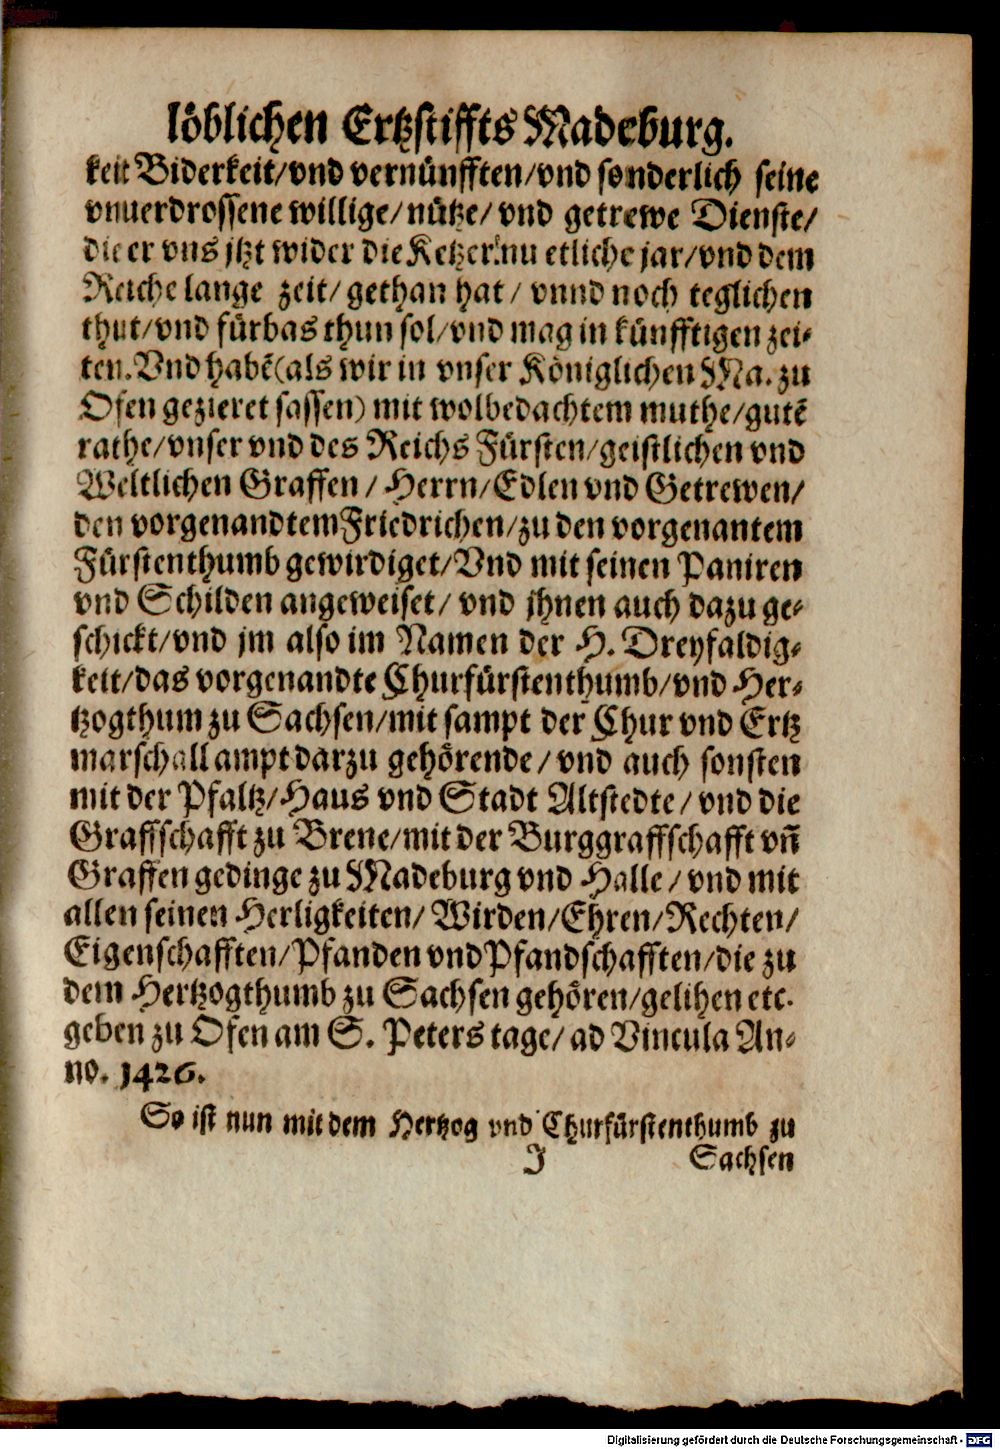 löblichen Ertzstiffts Madeburg.
keit Biderkeit/vnd vernünfften/vnd sonderlich seine
vnuerdrossene willige/nütze/vnd getrewe Dienste/
die er vns jtzt wider die Ketzer nu etliche jar/vnd dem
Reiche lange zeit/gethan hat/vnnd noch teglichen
thut/vnd fürbas thun sol/vnd mag in künfftigen zei-
ten. Vnd habē(als wir in vnser Königlichen Ma. zu
Ofen gezieret sassen) mit wolbedachtem muthe/gutē
rathe/vnser vnd des Reichs Fürsten/geistlichen vnd
Weltlichen Graffen/Herrn/Edlen vnd Getrewen/
den vorgenandtem Friedrichen/zu den vorgenantem
Fürstenthumb gewirdiget/Vnd mit seinen Paniren
vnd Schilden angeweiset/vnd jhnen auch dazu ge-
schickt/vnd jm also im Namen der H. Dreyfaldig-
keit/das vorgenandte Churfürstenthumb/vnd Her-
tzogthum zu Sachsen/mit sampt der Chur vnd Ertz
marschall ampt darzu gehörende/vnd auch sonsten
mit der Pfaltz/Haus vnd Stadt Altstedte/vnd die
Graffschafft zu Brene/mit der Burggraffschafft vñ
Graffen gedinge zu Madeburg vnd Halle/vnd mit
allen seinen Herligkeiten/Wirden/Ehren/Rechten/
Eigenschafften/Pfanden vnd Pfandschafften/die zu
dem Hertzogthumb zu Sachsen gehören/gelihen etc.
geben zu Ofen am S. Peters tage/ad Vincula An-
no. 1426.
So ist nun mit dem Hertzog vnd Churfürstenthumb zu
J Sachsen
Digitalisierung gefördert durch die Deutsche Forschungsgemeinschaft - DFG